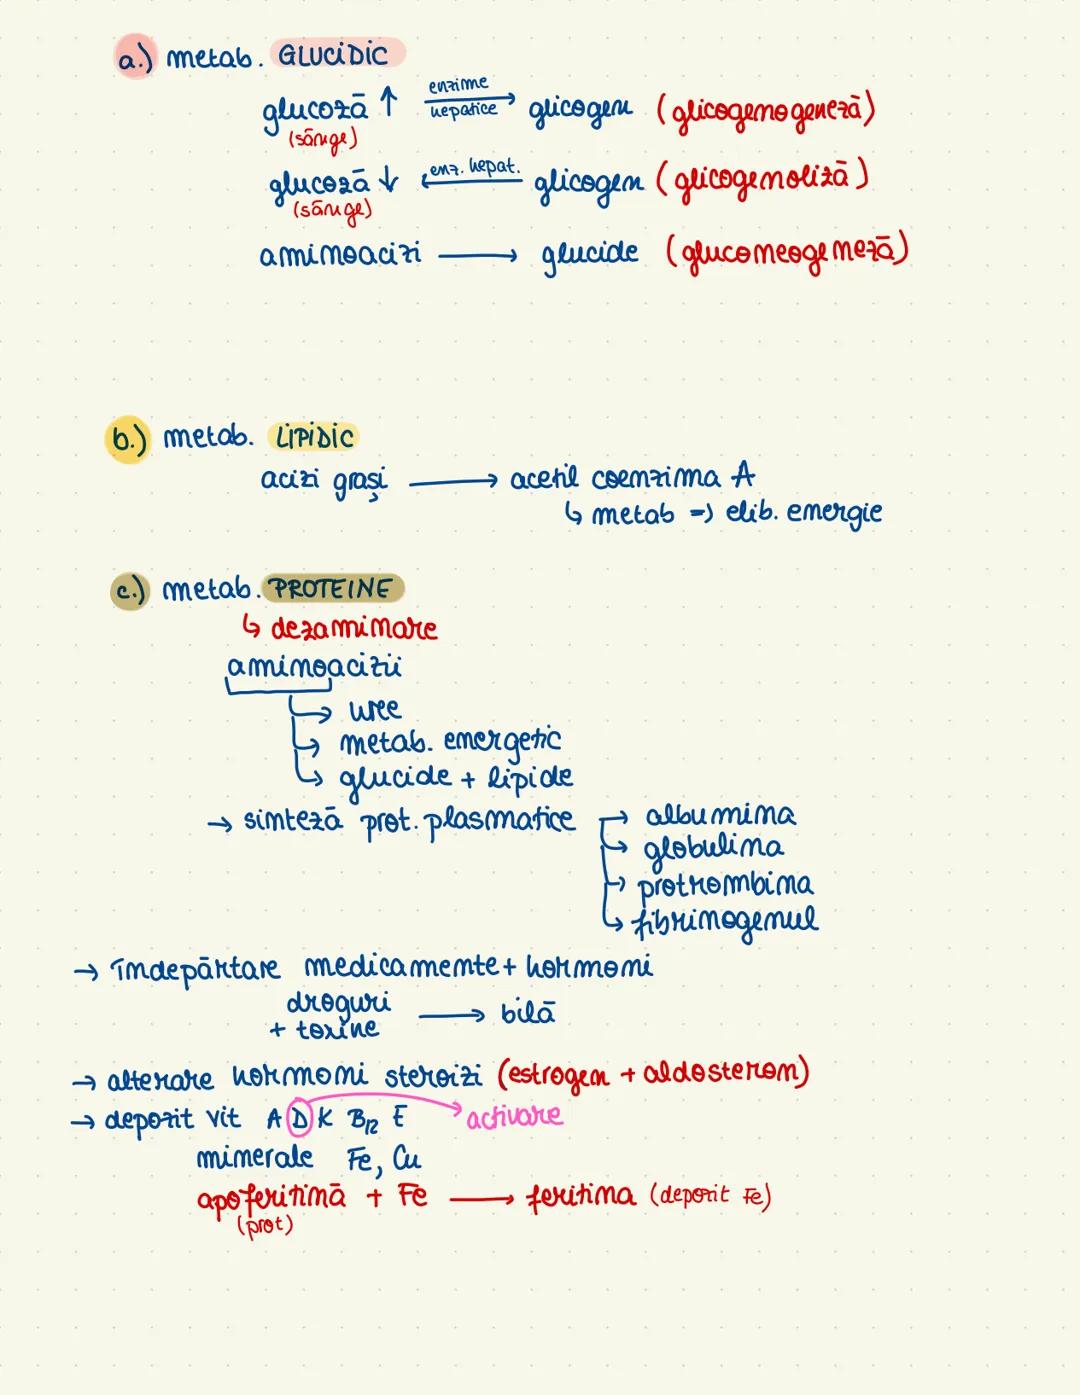 a.) metab. GLUCIDIC
glucoză ↑ enzime hepatice → glicogen (glicogenogeneză)
(sânge)
glucoză ↓ ← enz. hepat. glicogen (glicogenoliză)
(sânge)
aminoacizi → glucide (gluconeogeneză)
b.) metab. LIPIDIC
acizi grași → acetil coenzima A
↳ metab => elib. energie
c.) metab. PROTEINE
↳ dezaminare
aminoacizii
↳ uree
↳ metab. energetic
↳ glucide + lipide
→ sinteză prot. plasmatice → albumina
↳ globulina
↳ protrombina
↳ fibrinogenul
→ îndepărtare medicamente + hormoni
droguri
+ toxine → bilă
→ alterare hormoni steroizi (estrogen + aldosteron)
→ depozit vit A D K B12 E activare
minerale Fe, Cu
apoferitină + Fe → feritina (depozit Fe)
(prot)